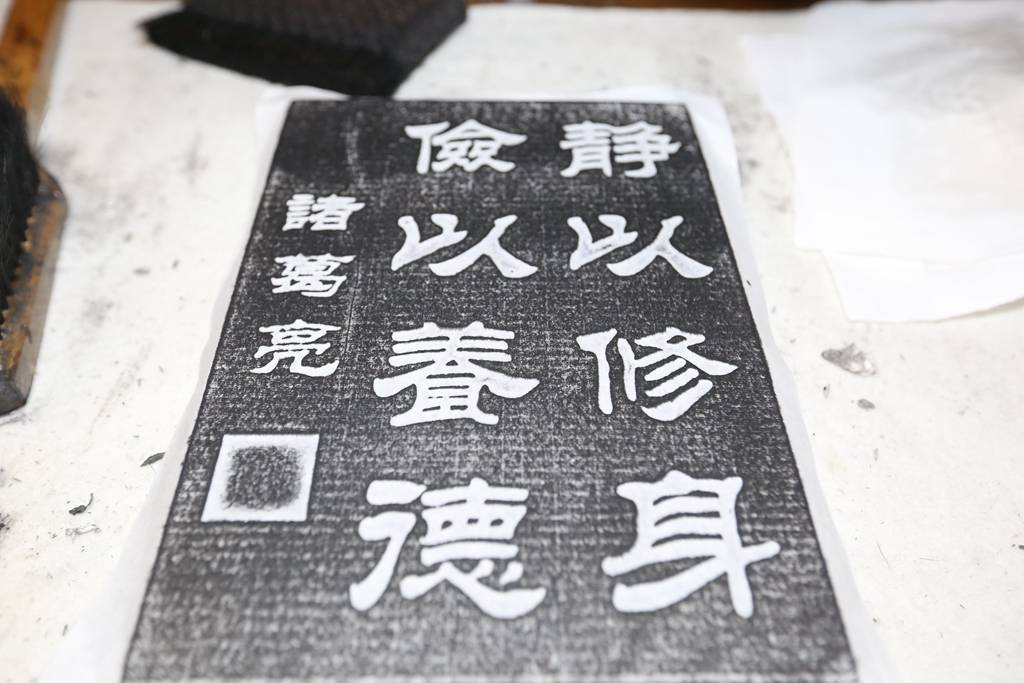 静以修身
儉以養德
諸葛亮